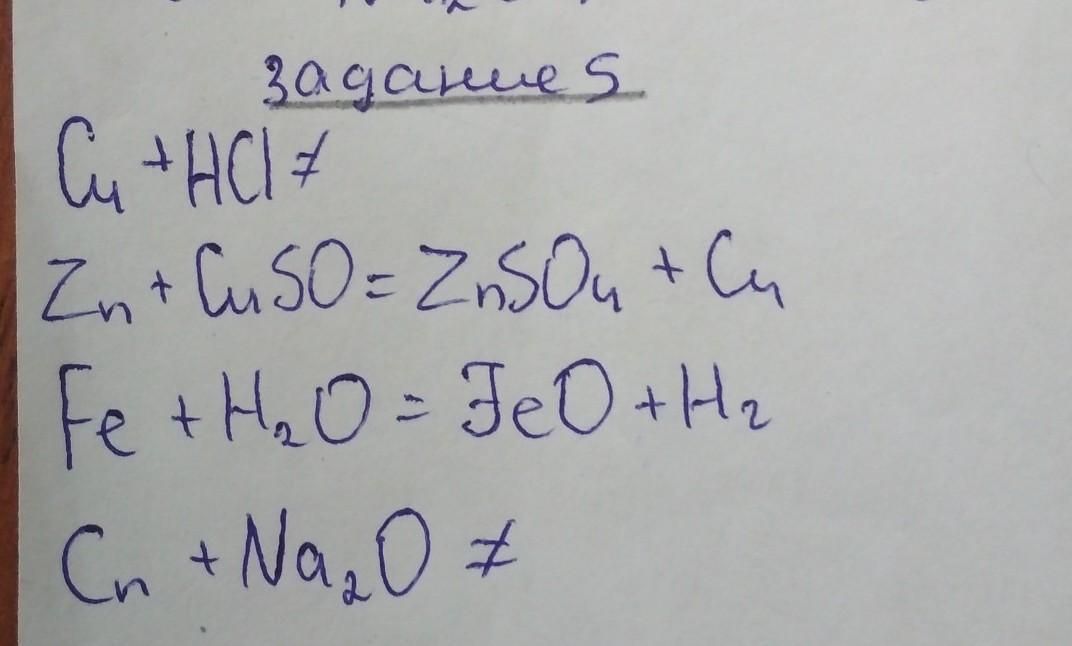 Задание 5
Cu + HCl ≠
Zn + CuSO = ZnSO₄ + Cu
Fe + H₂O = FeO + H₂
Cn + Na₂O ≠